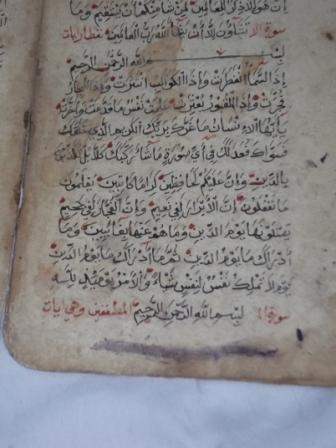 ان هو الا ذكر للعالمين لمن شاء منكم ان يستقيم وما
تشاؤن الا ان يشاء الله رب العالمين
بسم الله الرحمن الرحيم
اذا السماء انفطرت واذا الكواكب انتثرت واذا البحار
فجرت واذا القبور بعثرت علمت نفس ما قدمت واخرت
يا ايها الانسان ما غرك بربك الكريم الذي خلقك
فسواك فعدلك في اي صورة ما شاء ركبك كلا بل تكذبون
بالدين وان عليكم لحافظين كراما كاتبين يعلمون
ما تفعلون ان الابرار لفي نعيم وان الفجار لفي جحيم
يصلونها يوم الدين وما هم عنها بغائبين وما
ادراك ما يوم الدين ثم ما ادراك ما يوم الدين
يوم لا تملك نفس لنفس شيئا والامر يومئذ لله
سورة المطففين وهي بسم الله الرحمن الرحيم